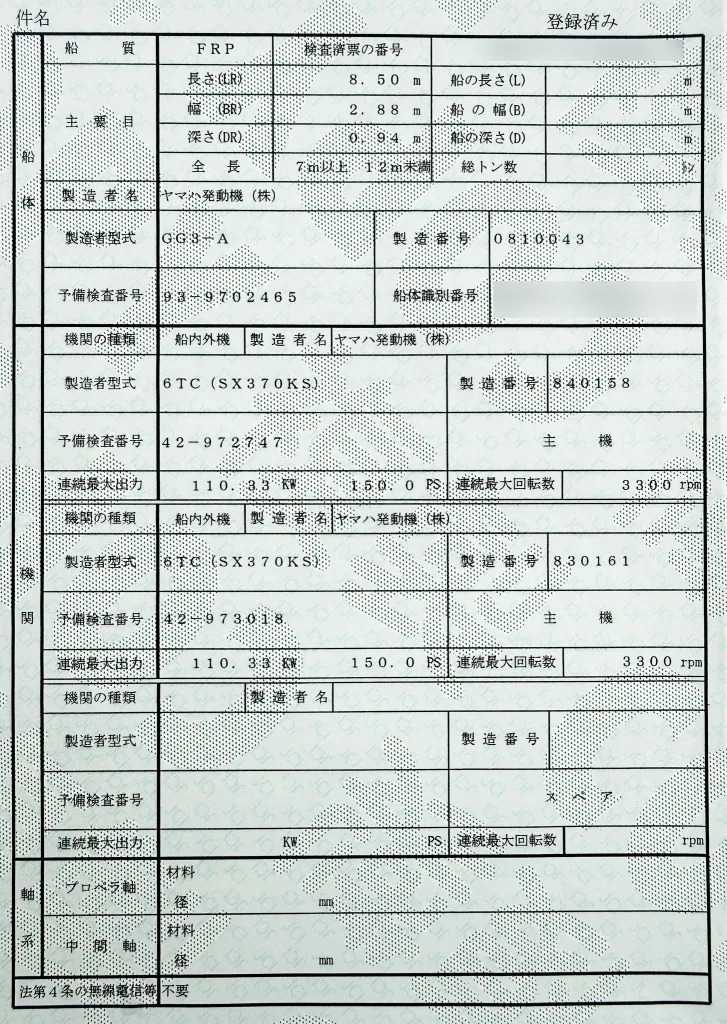 件名 登録済み
船体
船質 FRP 検査済票の番号
主要目 長さ(LR) 8.50 m 船の長さ(L) m
幅 (BR) 2.88 m 船の幅(B) m
深さ(DR) 0.94 m 船の深さ(D) m
全長 7m以上 12m未満 総トン数 トン
製造者名 ヤマハ発動機(株)
製造者型式 GG3-A 製造番号 0810043
予備検査番号 93-9702465 船体識別番号
機関
機関の種類 船内外機 製造者名 ヤマハ発動機(株)
製造者型式 6TC(SX370KS) 製造番号 840158
予備検査番号 42-972747 主機
連続最大出力 110.33 KW 150.0 PS 連続最大回転数 3300 rpm
機関の種類 船内外機 製造者名 ヤマハ発動機(株)
製造者型式 6TC(SX370KS) 製造番号 830161
予備検査番号 42-973018 主機
連続最大出力 110.33 KW 150.0 PS 連続最大回転数 3300 rpm
機関の種類 製造者名
製造者型式 製造番号
予備検査番号 スペア
連続最大出力 KW PS 連続最大回転数 rpm
軸系
プロペラ軸 材料
径 mm
中間軸 材料
径 mm
法第4条の無線電信等 不要